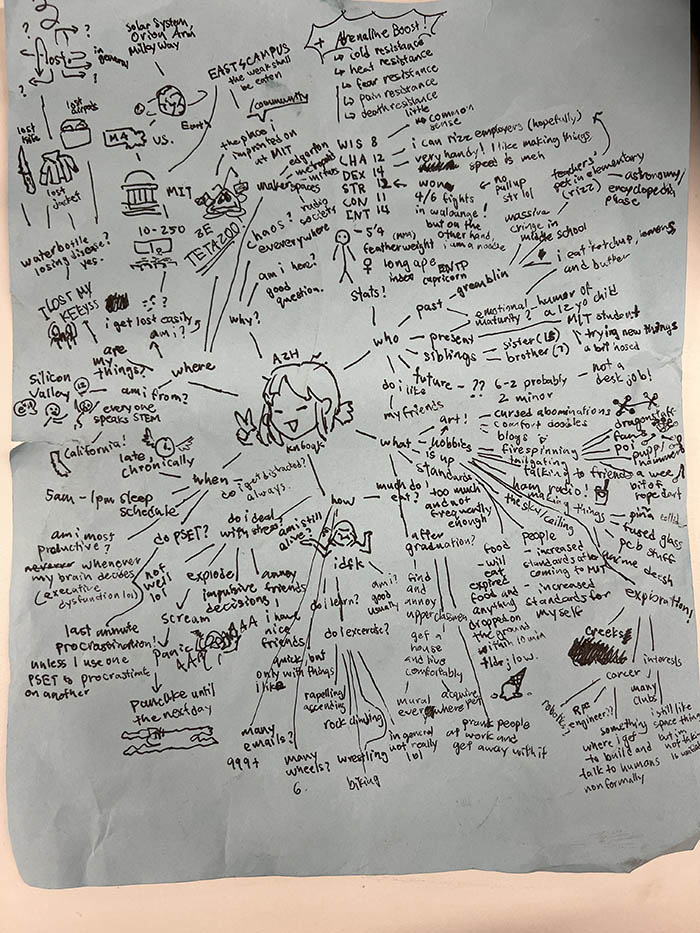 ?
?
?
lost
in general
?
?
Solar System,
Orion Arm,
Milky Way
EAST CAMPUS
the weak shall
be eaten
community
Earth
MA
US.
lost knife
lost airpods
lost jacket
waterbottle
losing disease?
yes.
MIT
10-250
the place i
imprinted on
at MIT
ZE
TETAZOO!
edgerton
metropolis
mitrs
maker
spaces
radio
society
chaos?
everywhere
am i here?
good
question.
why?
+ Adrenaline Boost!
↳ cold resistance
↳ heat resistance
↳ fear resistance
↳ pain resistance
↳ death resistance
little
common
sense
WIS 8
CHA 12
DEX 14
STR 12
CON 11
INT 14
i can rizz employers (hopefully)
very handy! I like making things.
speed is meh
won
4/6 fights
in
but on the
other hand,
i am a noodle
no
pullup
str lol
teachers'
pet in elementary
(rizz)
astronomy/
encyclopedia
phase
massive
cringe in
middle school
~5'4
featherweight
♀ long ape
index
ENTP
capricorn
stats!
i eat ketchup, lemons,
and butter
past
gremblin
who
present
emotional
maturity?
humor of
a 12 yo child
MIT student
siblings
sister (15)
brother (?)
trying new things
a bit nosed
future - ??
6-2 probably
2 minor
not a
desk job!
do i like
my friends
I LOST MY
KEEYSS
i get lost easily
am i?
are
my
things?
where
Silicon
Valley
am i from?
everyone
speaks STEM
California!
AZH
knbook
late,
chronically
when
5am - 1pm sleep
schedule
do i get distracted?
always.
am i most
productive?
whenever
my brain decides
(executive
dysfunction lol)
do PSET?
not
well
lol
last minute
procrastination!
unless I use one
PSET to procrastinate
on another
do i deal
with stress?
explode
scream
impulsive
decisions
annoy
friends
i have
nice
friends
panic
AAA!
AAAA
pancake until
the next day
how
am i still
alive?
idfk
am i?
good
usually
do i learn?
quick but
only with things
i like
do i excercise?
rapelling/
ascending
rock climbing
wrestling
biking
many
emails?
999+
many
wheels?
6.
in general
not really
lol
what
art!
cursed abominations
comfort doodles
blogs
hobbies
firespinning
dragonstaff
fans
poi
puppy
hammer
a weeny
bit of
rope dart
tailgating
talking to friends
ham radio!
making things
piña collab
fused glass
pcb stuff
anime dessh
is up
the sky/ceiling
standards
people
- increased
standards after
coming to MIT
- increased
standards for
myself
much do i
eat?
too much
and not
frequently
enough
food
- will
eat
expired
food and
anything
dropped on
the ground
within 10 min
tldr; low.
after
graduation?
find
and
annoy
upperclassmen
get a
house
and live
comfortably
mural
everywhere
acquire
pet
prank people
at work and
get away with it
exploration!
creeks
career
interests
robotics?
RF
engineer??
something
where i get
to build and
talk to humans
non formally
many
clubs
i still like
space things
but im
not taking